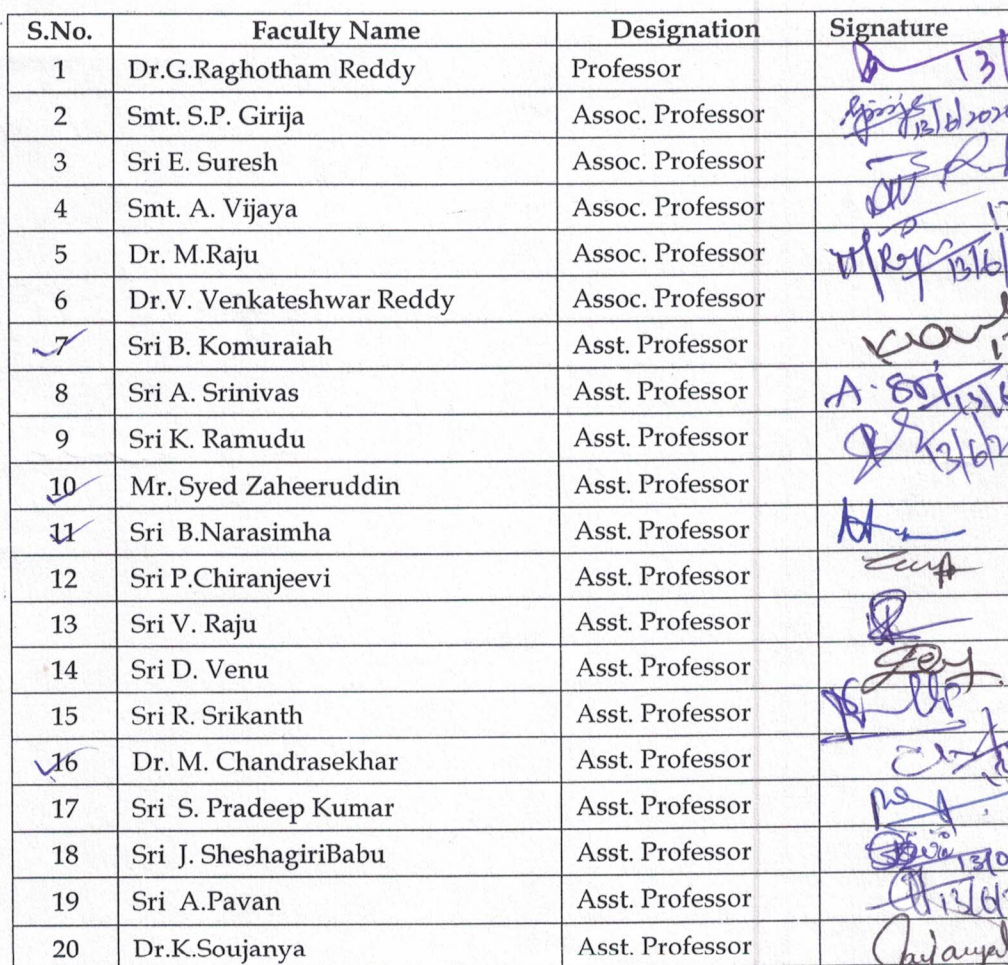 S.No. Faculty Name Designation Signature
1 Dr.G.Raghotham Reddy Professor 13/
2 Smt. S.P. Girija Assoc. Professor 13/6/202
3 Sri E. Suresh Assoc. Professor
4 Smt. A. Vijaya Assoc. Professor
5 Dr. M.Raju Assoc. Professor 13/6/
6 Dr.V. Venkateshwar Reddy Assoc. Professor
7 Sri B. Komuraiah Asst. Professor
8 Sri A. Srinivas Asst. Professor A. Sri 13/6
9 Sri K. Ramudu Asst. Professor 13/6/2
10 Mr. Syed Zaheeruddin Asst. Professor
11 Sri B.Narasimha Asst. Professor
12 Sri P.Chiranjeevi Asst. Professor
13 Sri V. Raju Asst. Professor
14 Sri D. Venu Asst. Professor
15 Sri R. Srikanth Asst. Professor
16 Dr. M. Chandrasekhar Asst. Professor
17 Sri S. Pradeep Kumar Asst. Professor
18 Sri J. SheshagiriBabu Asst. Professor 13/0
19 Sri A.Pavan Asst. Professor 13/6/
20 Dr.K.Soujanya Asst. Professor